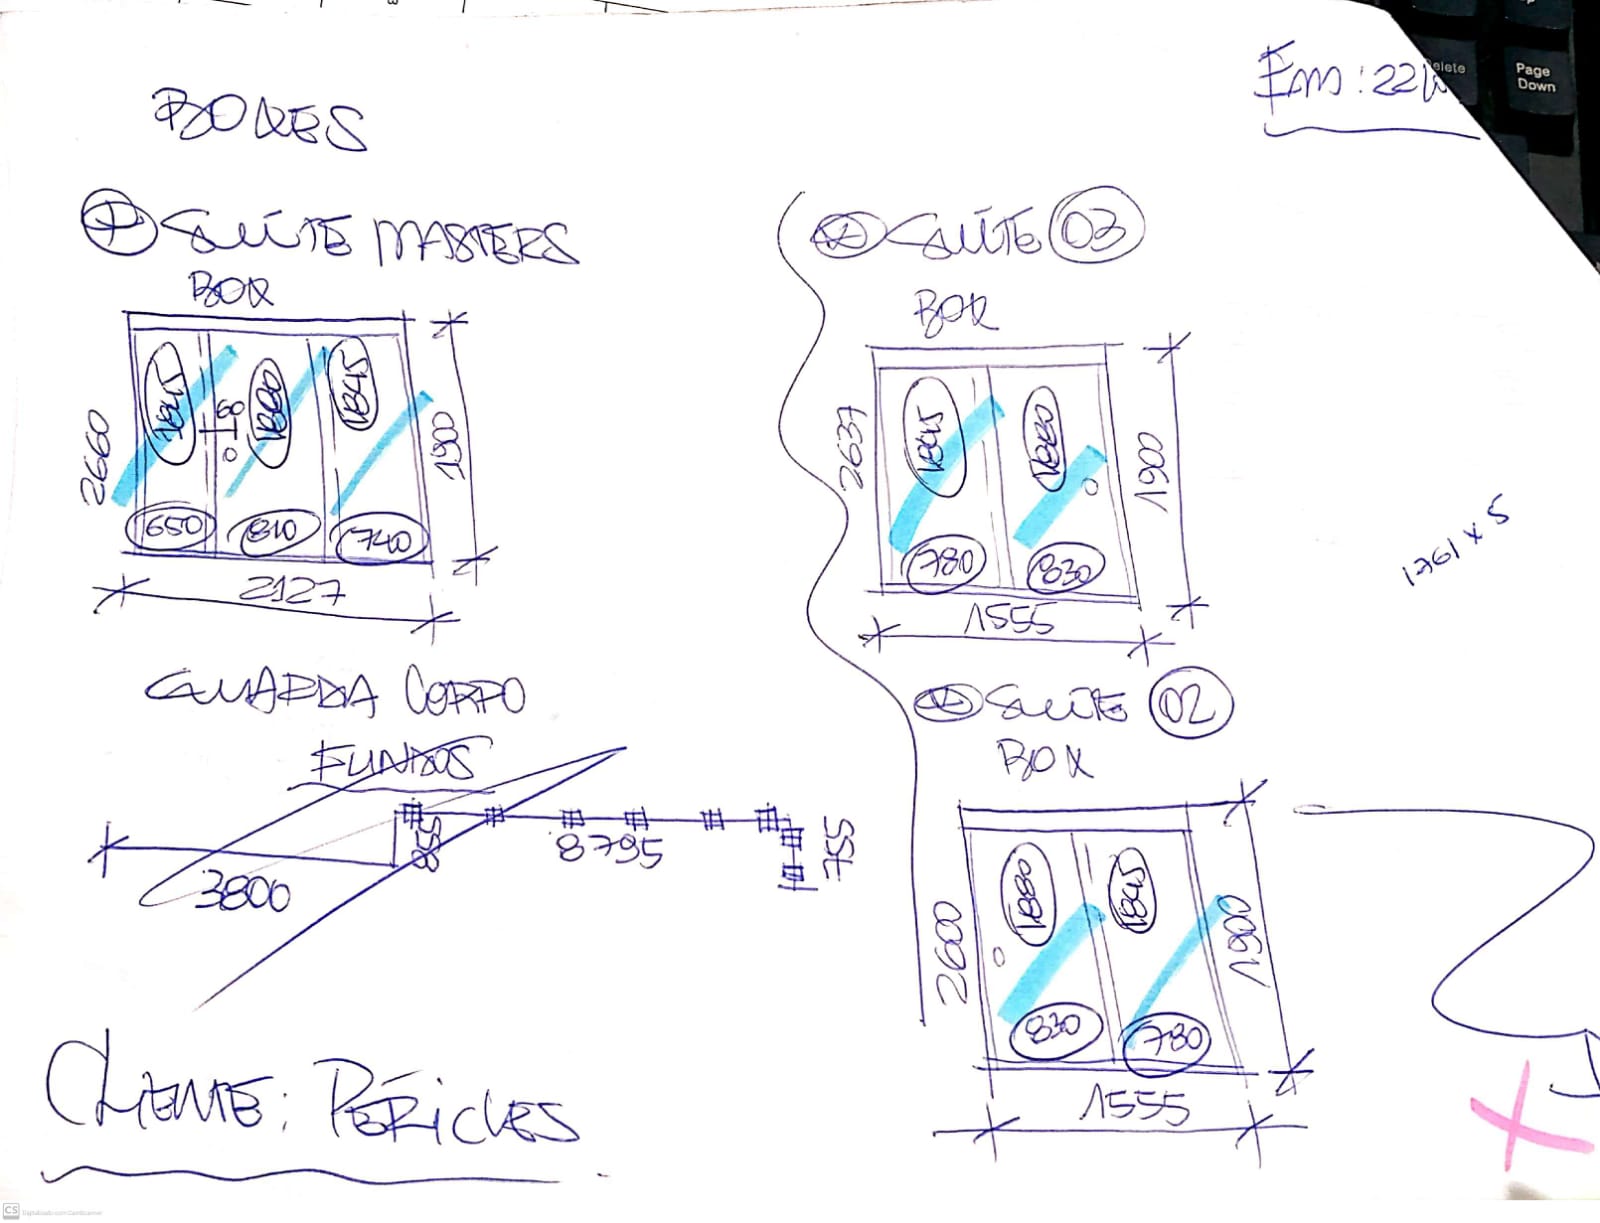 BOXES
Em: 22
Delete
Page
Down
SUÍTE MASTERS
BOX
2660
1845
1880
1845
1900
650
810
740
2127
SUÍTE 03
BOX
2637
1845
1880
1900
780
830
1555
1761 x 5
GUARDA CORPO
FUNDOS
3800
855
8795
755
SUÍTE 02
BOX
2600
1880
1845
1900
830
780
1555
CLIENTE: PÉRICLES
CS Digitalizado com CamScanner